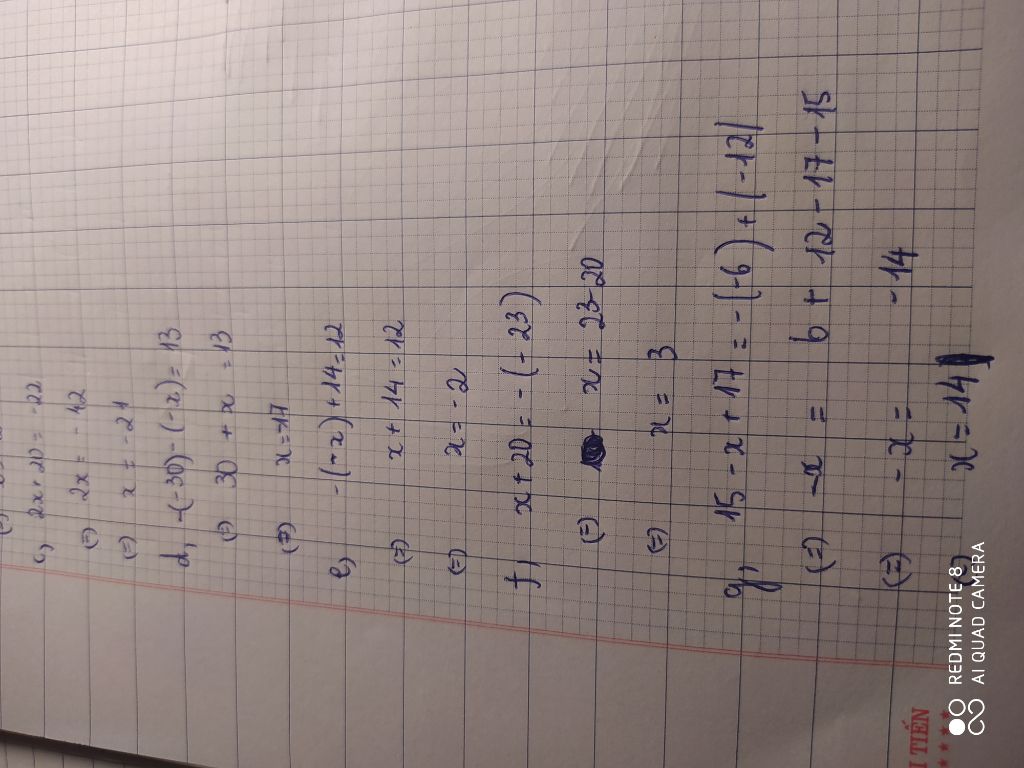 c, 2x + 20 = -22
(=) 2x = -42
(=) x = -21
d, -(-30) - (-x) = 13
(=) 30 + x = 13
(=) x = -17
e, -(-x) + 14 = 12
(=) x + 14 = 12
(=) x = -2
f, x + 20 = -(-23)
(=) x = 23 - 20
(=) x = 3
g, 15 - x + 17 = -(-6) + |-12|
(=) -x = 6 + 12 - 17 - 15
(=) -x = -14
(=) x = 14
REDMI NOTE 8
AI QUAD CAMERA
I TIẾN